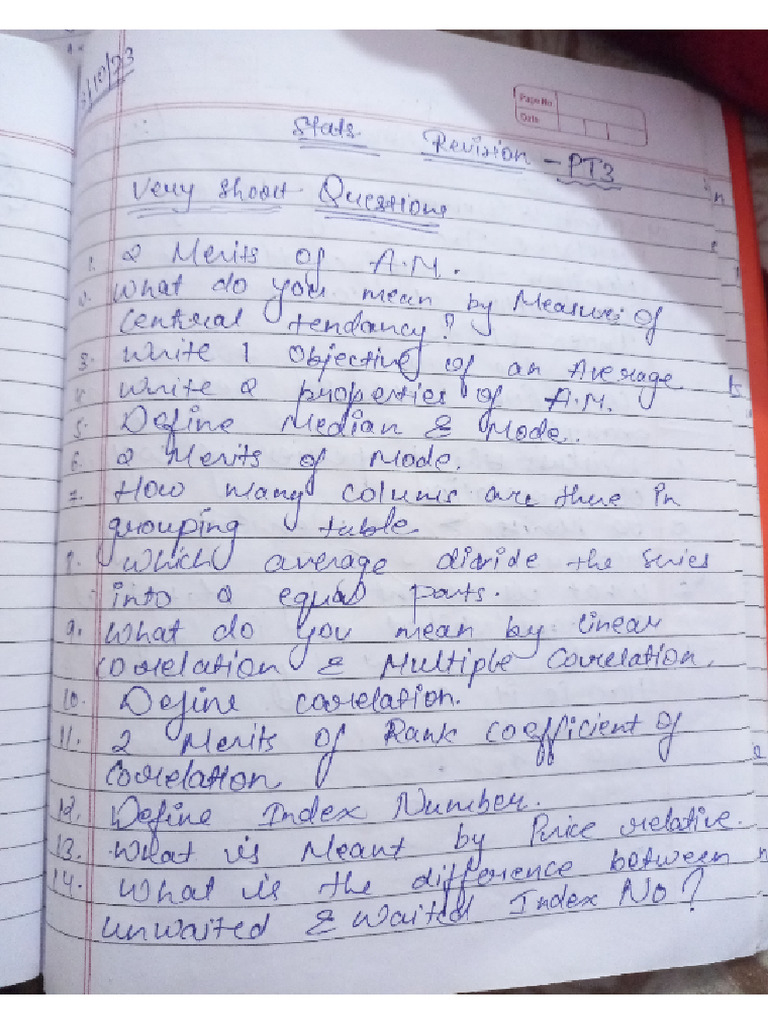 /10/23
Page No
Date
Stats. Revision - PT3
Very Short Questions
1. 2 Merits of A.M.
2. What do you mean by Measures of
Central tendancy?
3. Write 1 Objective of an Average
4. Write 2 properties of A.M.
5. Define Median & Mode.
6. 2 Merits of Mode.
7. How many colums are there in
grouping table
8. Which average divide the series
into 2 equal parts.
9. What do you mean by linear
Correlation & Multiple Correlation.
10. Define correlation.
11. 2 Merits of Rank coefficient of
Correlation
12. Define Index Number.
13. What is Meant by Price relative.
14. What is the difference between
unwaited & waited Index No?